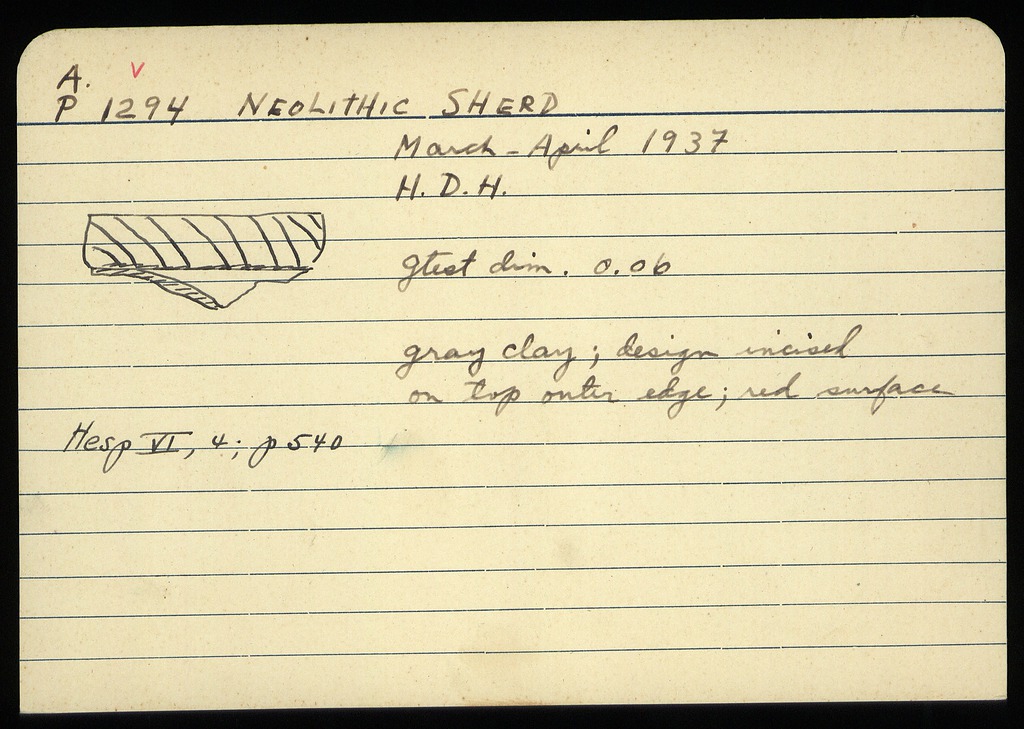 A. v
P 1294 NEOLITHIC SHERD
March - April 1937
H. D. H.
gtest dim. 0.06
gray clay; design incised
on top outer edge; red surface
Hesp VI, 4; p 540